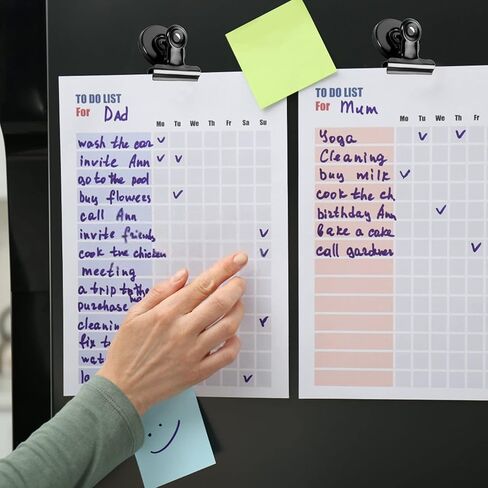 TO DO LIST
For Dad
Mo Tu We Th Fr Sa Su
wash the car
invite Ann
go to the pool
buy flowers
call Ann
invite friends
cook the chicken
meeting
a trip to the
purchase
cleaning
fix
TO DO LIST
For Mum
Mo Tu We Th Fr Sa Su
Yoga
Cleaning
buy milk
cook the ch
birthday Ann
bake a cake
call gardner